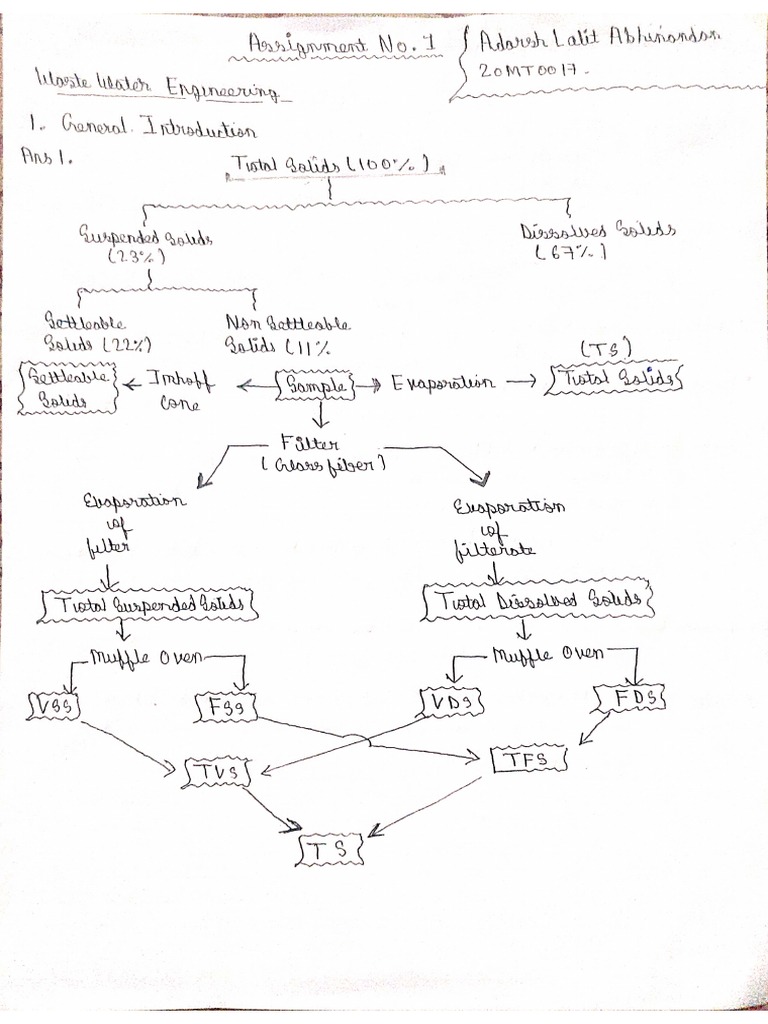 Assignment No. 1
Adarsh Lalit Abhinandan
20MT0017.
Waste Water Engineering
1. General Introduction
Ans 1.
Total Solids (100%)
Suspended Solids
(23%)
Dissolves Solids
(67%)
Settleable
Solids (22%)
Non Settleable
Solids (11%
(TS)
Settleable
Solids
Imhoff
cone
Sample
Evaporation
Total Solids
Filter
(Glass fiber)
Evaporation
of
filter
Evaporation
of
filterate
Total Suspended Solids
Total Dissolved Solids
Muffle Oven
Muffle Oven
VSS
FSS
VDS
FDS
TVS
TFS
TS